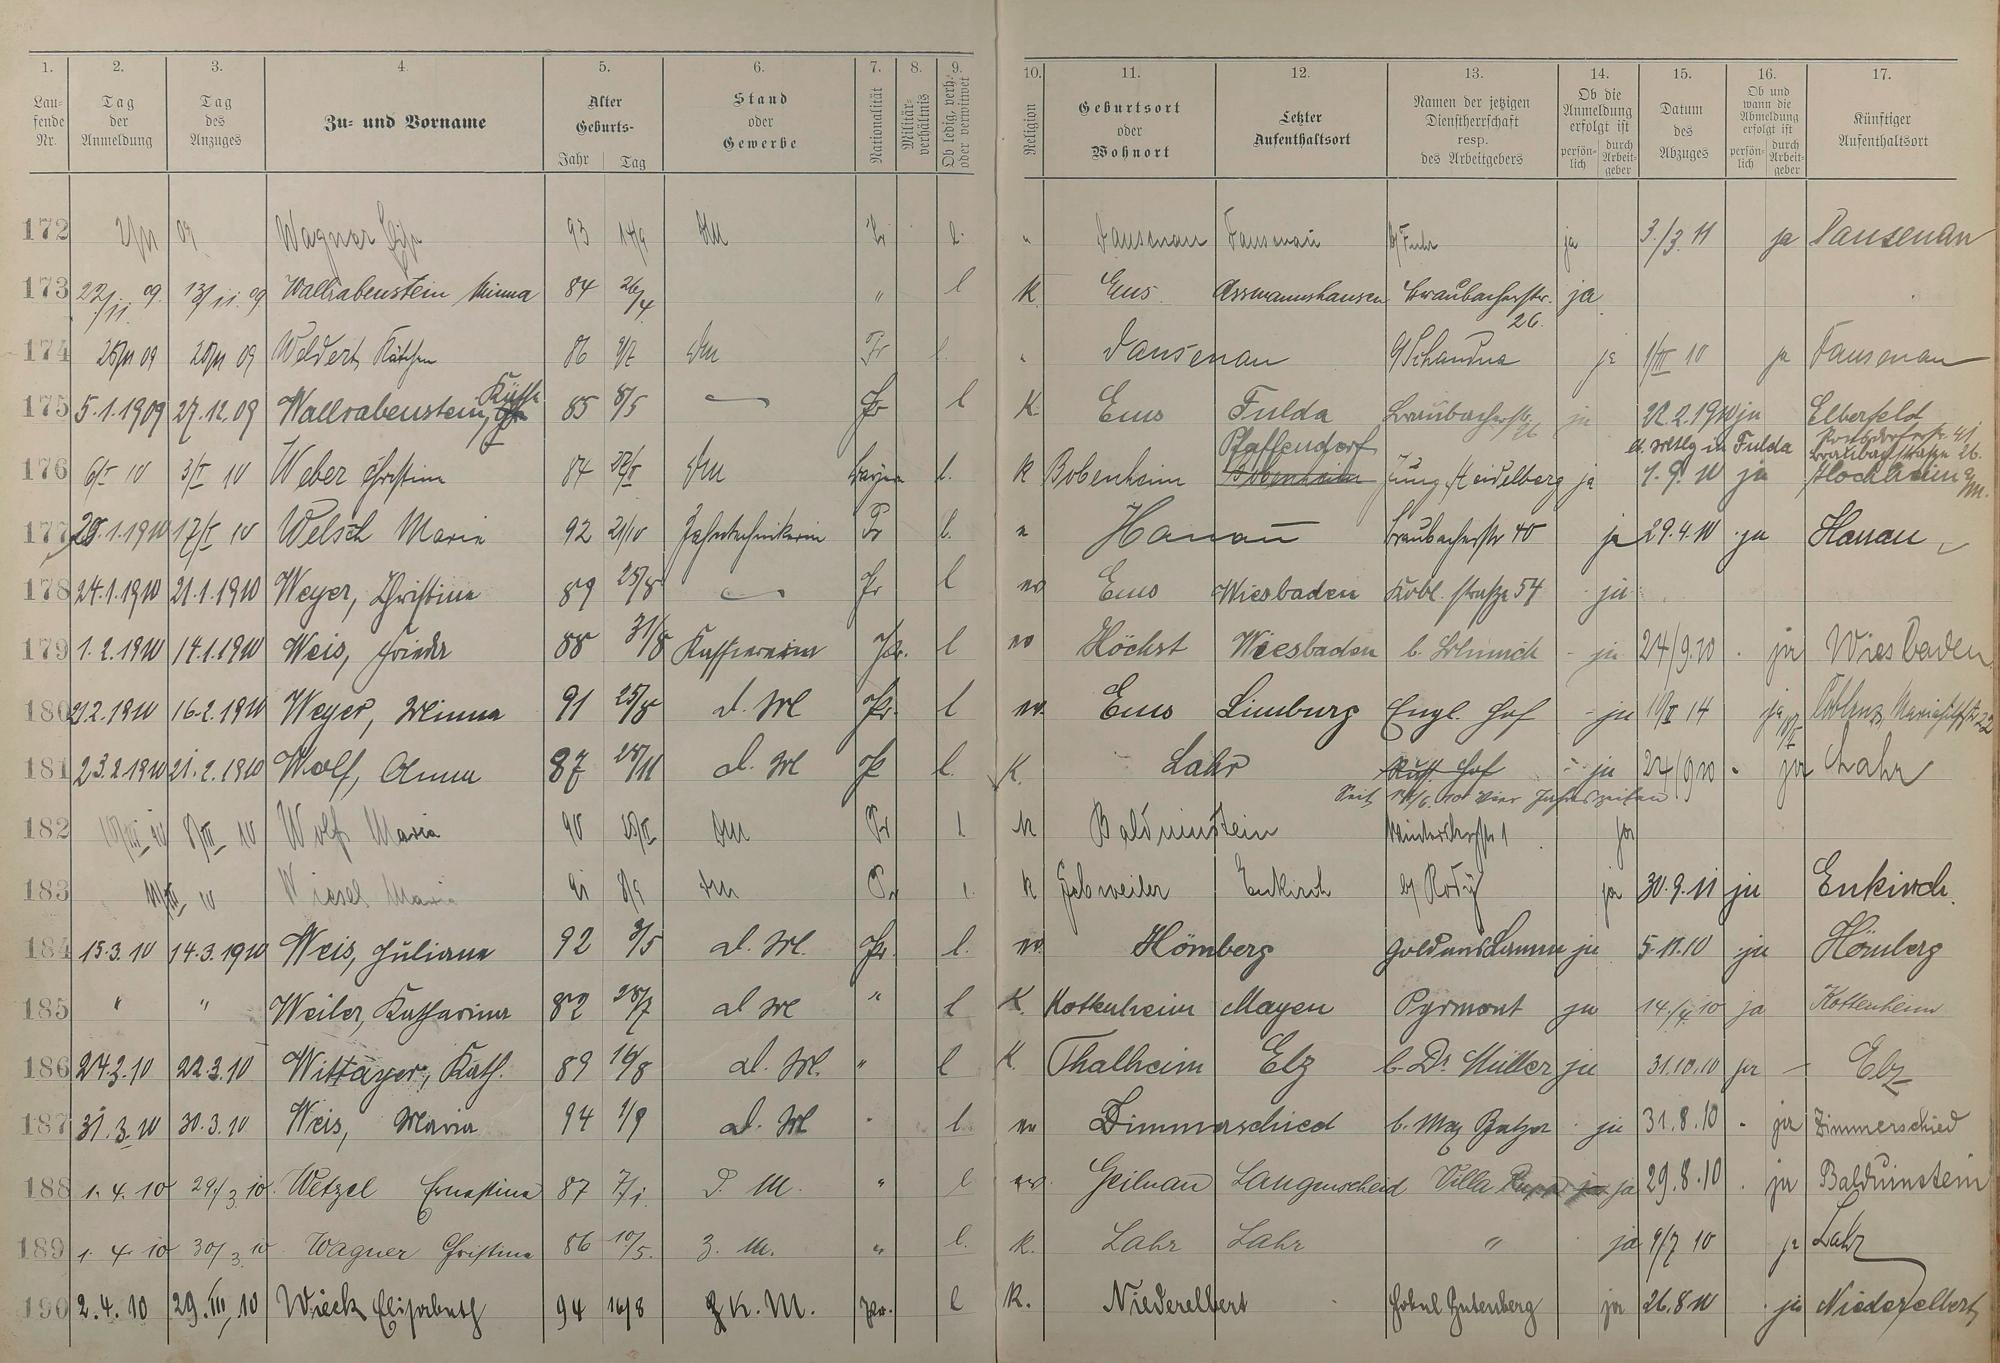 1. 2. 3. 4. 5. 6. 7. 8. 9. 10. 11. 12. 13. 14. 15. 16. 17.
Lau-
fende
Nr.
Tag
der
Anmeldung
Tag
des
Anzuges
Zu- und Vorname
Alter
Geburts-
Jahr Tag
Stand
oder
Gewerbe
Nationalität
Militär-
verhältnis
Ob ledig, verh.
oder verwitwet
Religion
Geburtsort
oder
Wohnort
Letzter
Aufenthaltsort
Namen der jetzigen
Dienstherrschaft
resp.
des Arbeitgebers
Ob die
Anmeldung
erfolgt ist
persön-
lich
durch
Arbeit-
geber
Datum
des
Abzuges
Ob und
wann die
Abmeldung
erfolgt ist
persön-
lich
durch
Arbeit-
geber
Künftiger
Aufenthaltsort
172 09 Wagner 93 14/9 Dm Pr l. " Dausenau Dausenau ja 3./3. 11 ja Dausenau
173 22/11 09. 13/11. 09 Wallrabenstein Minna 84 26/4 " l K. Ems Assmannshausen Braubacherstr. ja
26.
174 09 09 Weldert, Kätchen 86 9/7 Dm Pr l. " Dausenau Schaudua ja 1/III 10 ja Dausenau
Käthe
175 5.1.1909 27.12.09 Wallrabenstein, 85 8/5 — Pr l K Ems Fulda Braubacherstr. 26 ja 22.2.1910 ja Elberfeld
Pfaffendorf in Fulda Braubacherstraße 26.
176 6/I 10 3/I 10 Weber Christina 84 Dm Bayern l. K Bobenheim Bobenheim Jung, Heidelberg ja 1.9. 10 ja Hochheim a/M.
177 20.1.1910 17/I 10 Welsch Maria 92 21/10 Zahntechnikerin Pr l. " Hanau Braubacherstr 40 ja 29.4.10 ja Hanau
178 24.1.1910 21.1.1910 Weyer, Christina 89 25/8 — Pr l ev Ems Wiesbaden Kobl. straße 54 ja
179 1.2.1910 14.1.1910 Weis, Frieda 88 31/8 Kassiererin Pr. l ev Höchst Wiesbaden ja 24/9.10 ja Wiesbaden
180 21.2.1910 16.2.1910 Weyer, Minna 91 25/8 d. M Pr. l ev. Ems Limburg Engl. Hof ja 10/II 14 ja Coblenz, 22
181 23.2.1910 21.2.1910 Wolf, Anna 87 28/11 d. M Pr l. K. Lahr Russ. Hof ja 24/9 10 ja Lahr
Seit 10 Vier Jahreszeiten
182 8/III 10 Wolf Maria 90 Dm Pr l K Balduinstein ja
183 10 Wiesel Maria 91 8/9 Dm Pr l. K Gebweiler Enkirch ja 30.9.11 ja Enkirch.
184 15.3.10 14.3.1910 Weis, Juliana 92 3/5 d. M. Pr. l. ev. Hömberg Goldenes Lamm ja 5.11.10 ja Hömberg
185 " " Weiler, Katharina 82 28/7 d M " l K. Kottenheim Mayen Pyrmont ja 14./4. 10 ja Kottenheim
186 24.3.10 22.3.10 Wittayer, Kath. 89 16/8 d. M. " l K. Thalheim Elz b. Dr. Müller ja 31.10.10 ja — Elz
187 31.3.10 30.3.10 Weis, Maria 94 1/9 d. M " l. ev Dimmerschied b. Max Balzer ja 31.8.10 ja Zimmerschied
188 1. 4. 10 29/3. 10. Wetzel Ernestine 87 7/1. D. M. " l ev. Geilnau Langenscheid Villa ja 29.8.10 ja Balduinstein
189 1. 4. 10 30/3. 10 Wagner Christina 86 10/5. Z. M. " l. K. Lahr Lahr " ja 9/7 10 ja Lahr
190 2.4.10 29.III.10 Wieck Elisabeth 94 16/8 Z K. M. Pr. l K. Niederelbert Hotel Gutenberg ja 26.8 10 ja Niederelbert